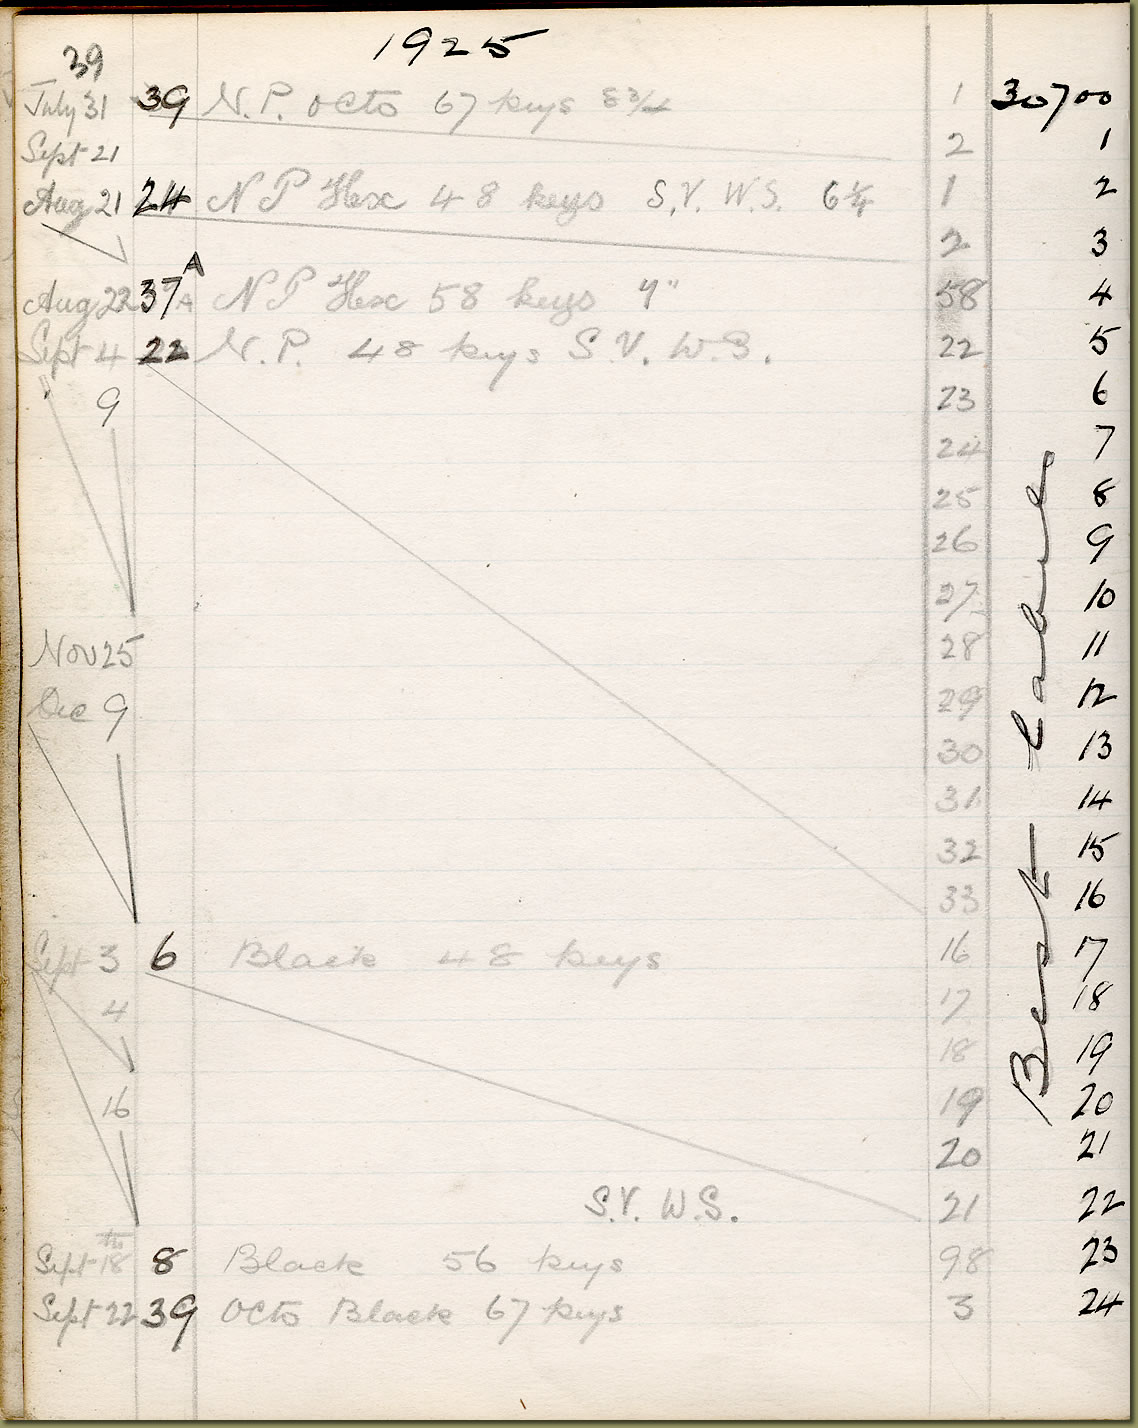 1925
39
July 31 39 N.P. Octo 67 keys 8 3/4 1 30700
Sept 21 2 1
Aug 21 24 N P Hex 48 keys S.V. W.S. 6 1/4 1 2
2 3
Aug 22 37A N P Hex 58 keys 58 4
Sept 4 22 N.P. 48 keys S.V. W.S. 22 5
" 9 23 6
24 7
25 8
26 9
27 10
Nov 25 28 11
Dec 9 29 12
30 13
31 14
32 15
33 16
Sept 3 6 Black 48 keys 16 17
4 17 18
18 19
16 19 20
20 21
S.V. W.S. 21 22
Sept 18th 8 Black 56 keys 98 23
Sept 22 39 Octo Black 67 keys 3 24
Best